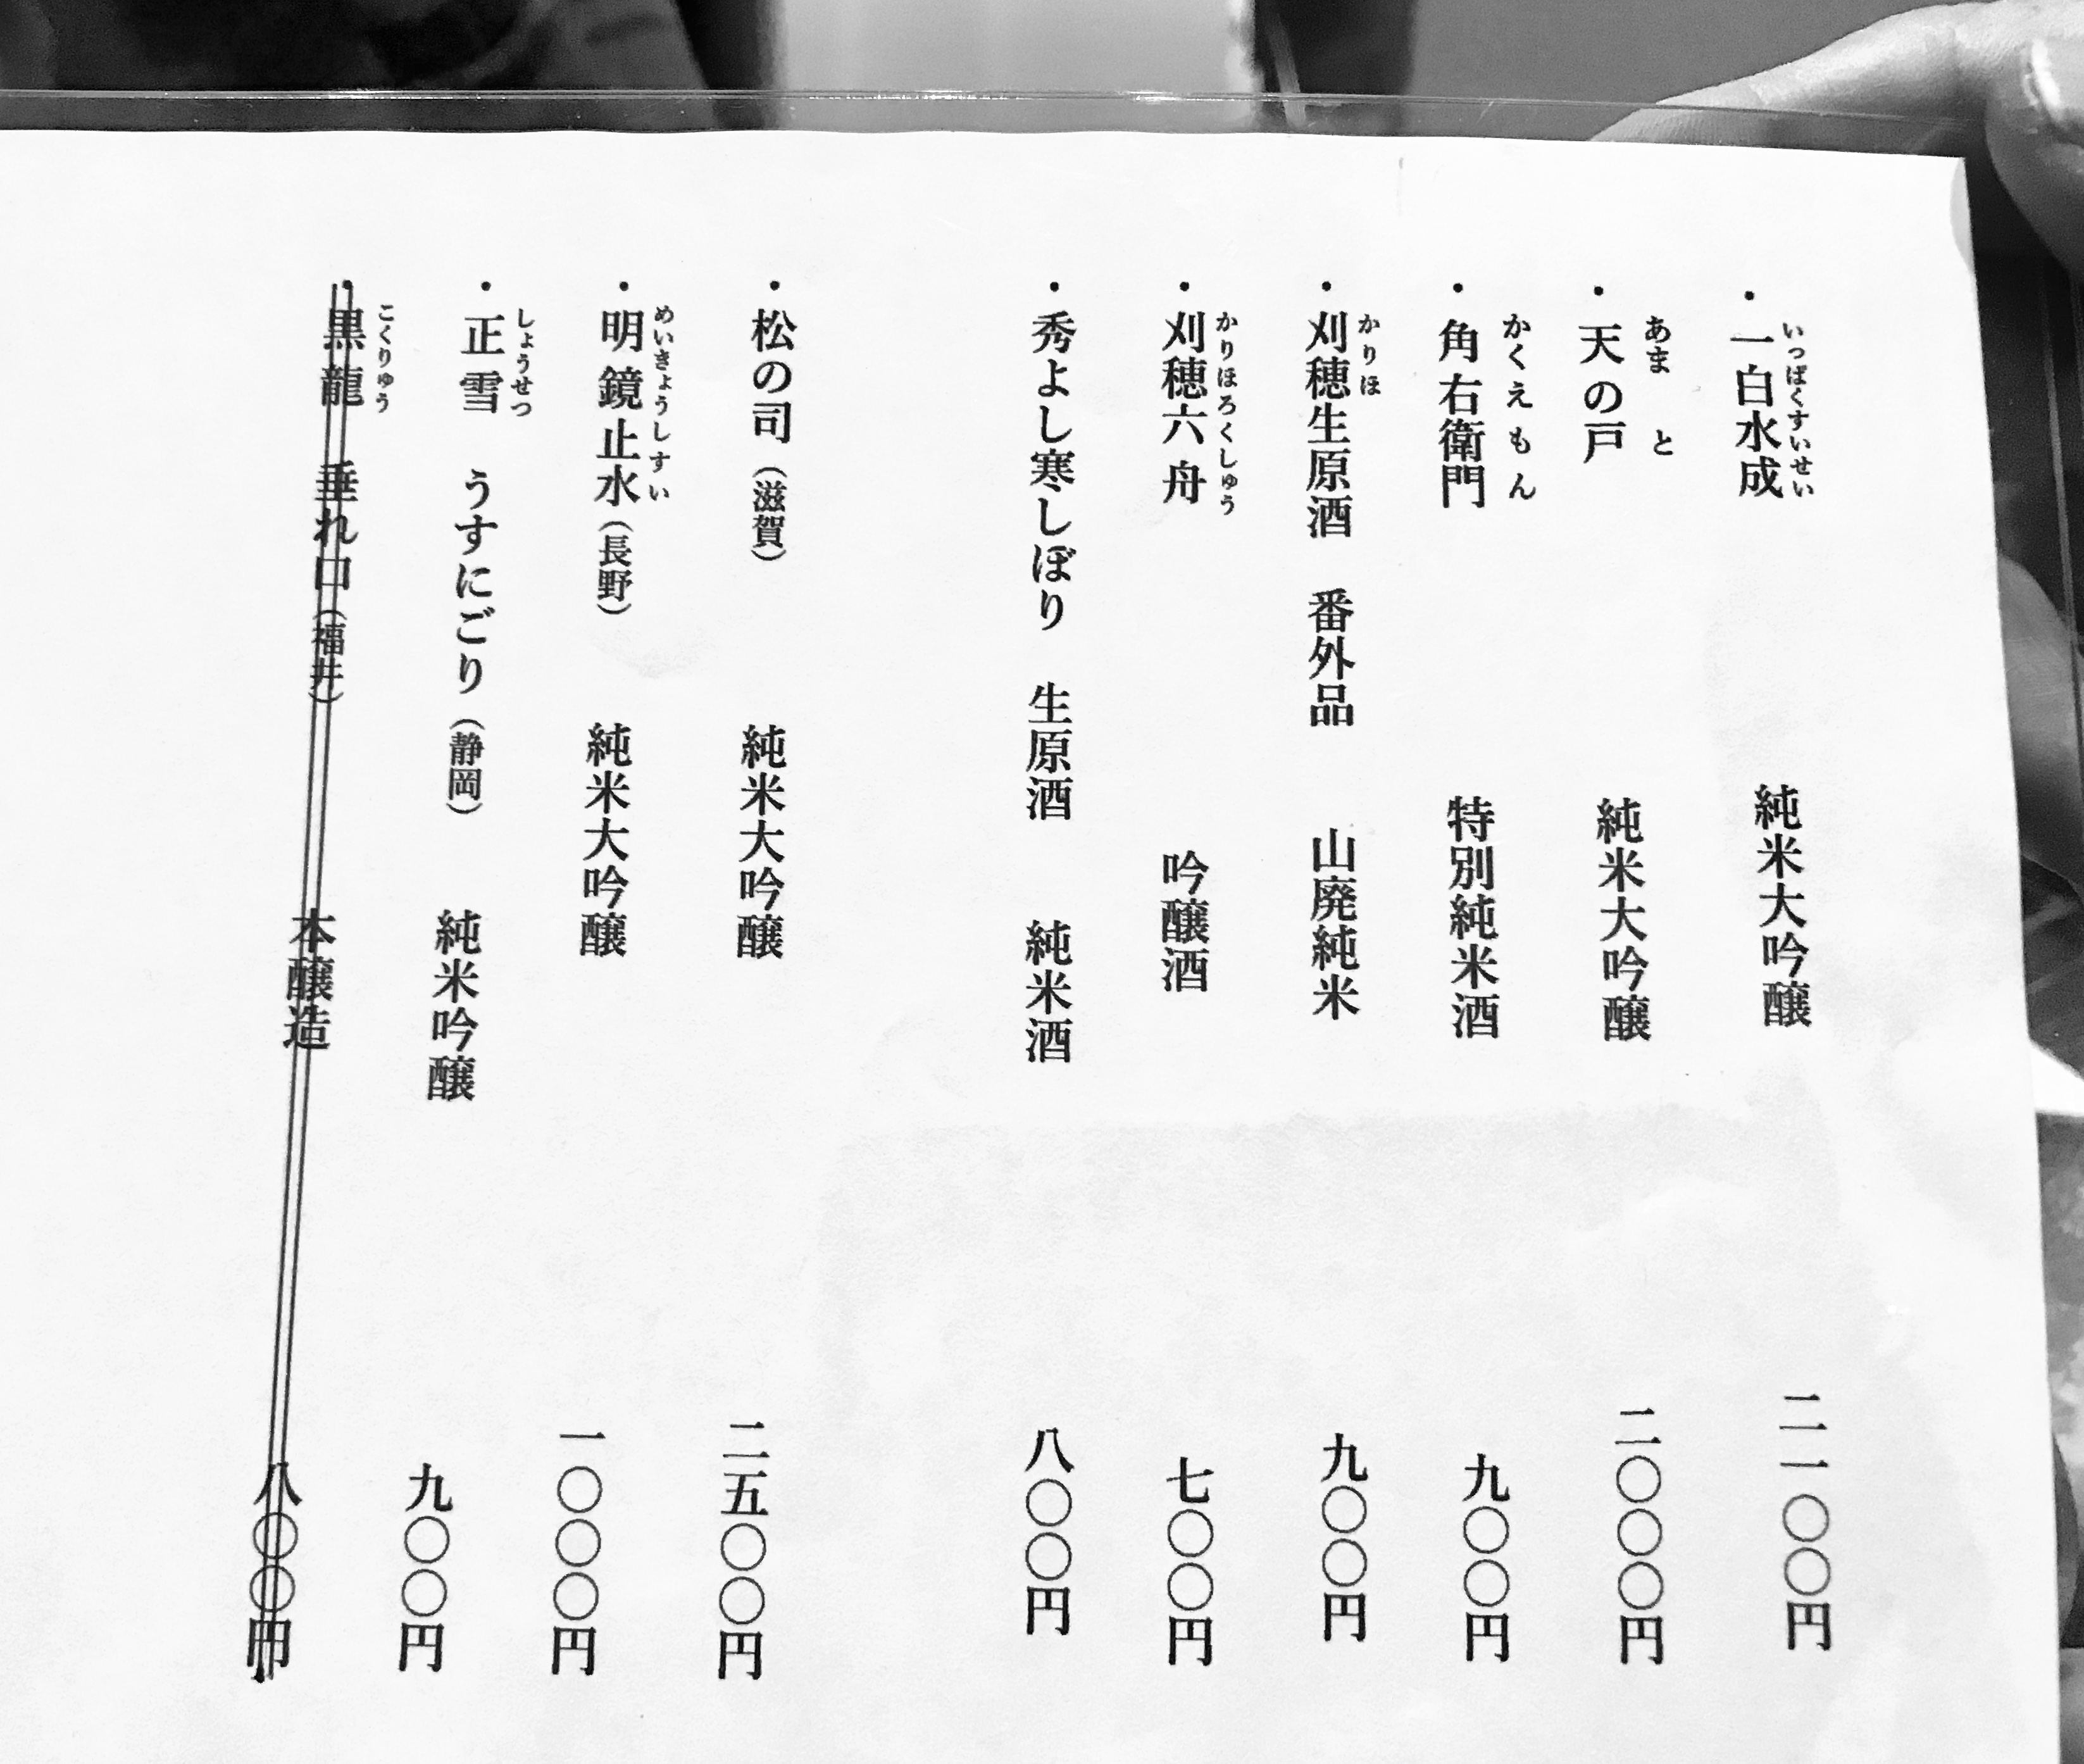 ・一白水成 純米大吟醸 二一〇〇円
いっぱくすいせい
・天の戸 純米大吟醸 二〇〇〇円
あま と
・角右衛門 特別純米酒 九〇〇円
かくえもん
・刈穂生原酒 番外品 山廃純米 九〇〇円
かりほ
・刈穂六舟 吟醸酒 七〇〇円
かりほろくしゅう
・秀よし寒しぼり 生原酒 純米酒 八〇〇円
・松の司(滋賀) 純米大吟醸 二五〇〇円
・明鏡止水(長野) 純米大吟醸 一〇〇〇円
めいきょうしすい
・正雪 うすにごり(静岡) 純米吟醸 九〇〇円
しょうせつ
・黒龍 垂れ口(福井) 本醸造 八〇〇円
こくりゅう